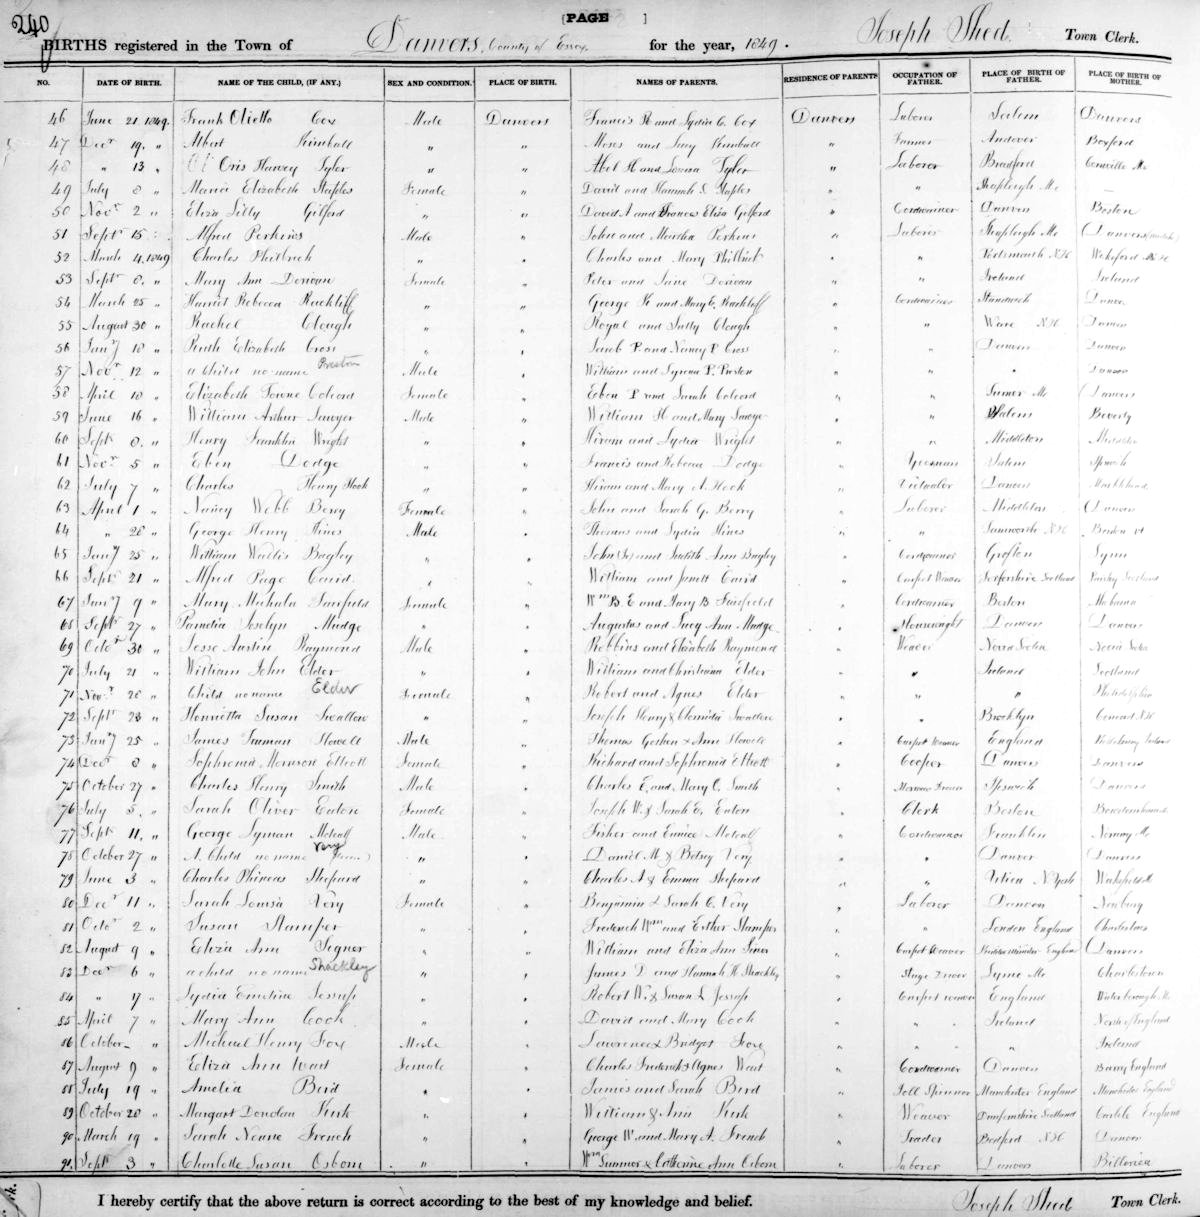 240 {PAGE ]
BIRTHS registered in the Town of Danvers, County of Essex, for the year, 1849. Joseph Shed. Town Clerk.
NO. DATE OF BIRTH. NAME OF THE CHILD, (IF ANY.) SEX AND CONDITION. PLACE OF BIRTH. NAMES OF PARENTS. RESIDENCE OF PARENTS OCCUPATION OF FATHER. PLACE OF BIRTH OF FATHER. PLACE OF BIRTH OF MOTHER.
46 June 21 1849. Frank Cox Male Danvers Francis R and Lydia C. Cox Danvers Laborer Salem Danvers
47 Decr 19 " Albert Kimball " " Moses and Lucy Kimball " Farmer Andover Boxford
48 " 13 " Oris Harvey Tyler " " Abel H and Louisa Tyler " Laborer Bradford Me
49 July 8 " Maria Elizabeth Staples Female " David and Hannah S. Staples " " Shapleigh Me "
50 Novr 2 " Eliza Lilly Gilford " " David A and Frances Eliza Gilford " Cordwainer Danvers Boston
51 Sept 15 Alfred Perkins Male " John and Martha Perkins " Laborer Shapleigh Me Danvers
52 March 4, 1849 Charles Philbrick " " Charles and Mary Philbrick " " Portsmouth NH
53 Sept 8, " Mary Ann Donivan Female " Peter and Jane Donivan " " Ireland Ireland
54 March 25 " Harriet Rebecca Rackliff " " George R and Mary E. Rackliff " Cordwainer Danvers
55 August 30 " Rachel Clough " " Royal and Sally Clough " " Ware NH Danvers
56 Jany 18 " Ruth Elizabeth Cross " " Jacob P. and Nancy P. Cross " " Danvers Danvers
57 Novr 12 " a Child no name Preston Male " William and Preston " " " Danvers
58 April 10 " Elizabeth Colcord Female " Eben P and Sarah Colcord " " Me Danvers
59 June 16 " William Arthur Sawyer Male " William H and Mary Sawyer " " Salem Beverly
60 Sept 8, " Henry Franklin Wright " " Hiram and Lydia Wright " " Middleton Middleton
61 Novr 5 " Eben Dodge " " Francis and Rebecca Dodge " Yeoman Salem Ipswich
62 July 7 " Charles Henry Hook " " Hiram and Mary A. Hook " Victualer Danvers Marblehead
63 April 1 " Nancy Webb Berry Female " John and Sarah G. Berry " Laborer Middleton Danvers
64 " 28 " George Henry Hines Male " Thomas and Lydia Hines " " NH Vt
65 Jany 25 " William Wallis Bagley " " John and Judith Ann Bagley " Cordwainer Grafton Lynn
66 Sept 21 " Alfred Page Caird " " William and Janett Caird " Carpet Weaver Forfarshire Scotland Paisley Scotland
67 Jany 9 " Mary Mahala Fairfield Female " Wm B. E. and Mary B Fairfield " Cordwainer Boston Alabama
68 Sept 27 " Pamelia Joselyn Mudge " " Augustus and Lucy Ann Mudge " Housewright Danvers Danvers
69 Octor 30 " Jesse Austin Raymond Male " Robbins and Elizabeth Raymond " Weaver Nova Scotia Nova Scotia
70 July 21 " William John Elder " " William and Christiana Elder " " Ireland Scotland
71 Novr 26 " Child no name Elder Female " Robert and Agnes Elder " " " Philadelphia
72 Sept 23 " Henrietta Susan Swallow " " Joseph Henry & Swallow " " Brooklyn Concord NH
73 Jany 25 " James Truman Howell Male " Thomas & Ann Howell " Carpet Weaver England
74 Decr 8 " Sophronia Morrison Elliott Female " Richard and Sophronia Elliott " Cooper Danvers Danvers
75 October 27 " Charles Henry Smith Male " Charles E. and Mary C. Smith " Morocco Dresser Ipswich Danvers
76 July 5, " Sarah Oliver Eaton Female " Joseph W. & Sarah E. Eaton " Clerk Boston
77 Sept 11, " George Lyman Metcalf Male " Fisher and Eunice Metcalf " Cordwainer Franklin Norway Me
78 October 27 " A Child no name Very " " Daniel M & Betsey Very " " Danvers Danvers
79 June 3 " Charles Phineas Shepard " " Charles A & Emma Shepard " " Utica N. York Wakefield
80 Decr 11 " Sarah Louisa Very Female " Benjamin & Sarah C. Very " Laborer Danvers Newburg
81 Octor 2 " Susan Stamper " " Frederick Wm and Esther Stamper " " London England Charlestown
82 August 9 " Eliza Ann Signer " " William and Eliza Ann " Carpet Weaver Kidderminster England Danvers
83 Decr 6 " a child no name Shackley " " James D and Hannah H Shackley " Stage Driver Lyme Me Charlestown
84 " 17 " Lydia Emeline Jessup " " Robert W. & Susan L Jessup " Carpet weaver England Waterborough Me
85 April 7 " Mary Ann Cook " " David and Mary Cook " " Ireland North of England
86 October Michael Henry Fox Male " Lawrence & Bridget Fox " " " Ireland
87 August 9 " Eliza Ann Wait Female " Charles Frederick & Agnes Wait " Cordwainer Danvers England
88 July 19 " Amelia Bird " " James and Sarah Bird " Spinner Manchester England Manchester England
89 October 20 " Margart Donolan Kirk " " William & Ann Kirk " Weaver Dumfrieshire Scotland Carlisle England
90 March 19 " Sarah French " " George W. and Mary A. French " Trader Bedford NH Danvers
91, Sept 3 " Charlotte Susan Osborn " " Wm Sumner & Catherine Ann Osborn " Laborer Danvers Billerica
I hereby certify that the above return is correct according to the best of my knowledge and belief. Joseph Shed Town Clerk.